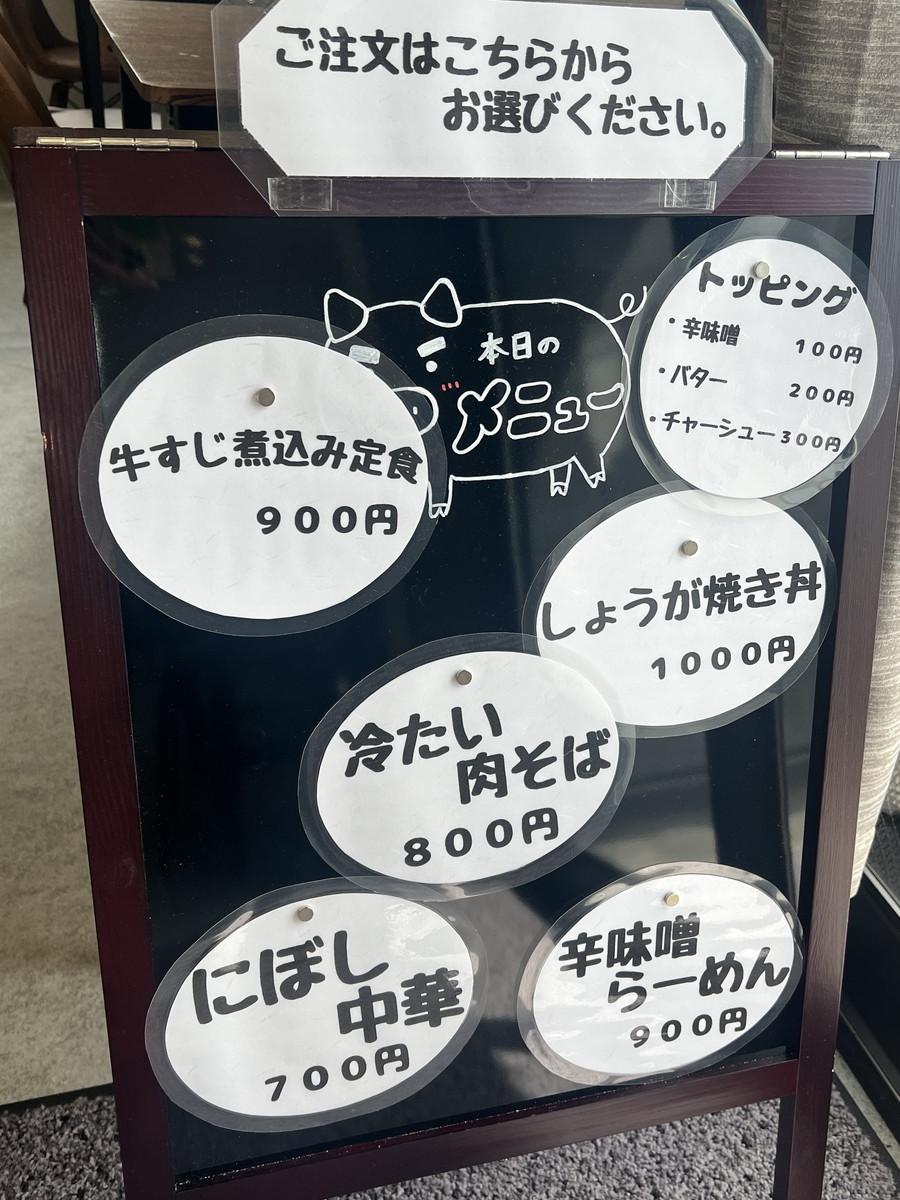 ご注文はこちらから
お選びください。
本日の
メニュー
トッピング
・辛味噌 100円
・バター 200円
・チャーシュー300円
牛すじ煮込み定食
900円
しょうが焼き丼
1000円
冷たい
肉そば
800円
にぼし
中華
700円
辛味噌
らーめん
900円